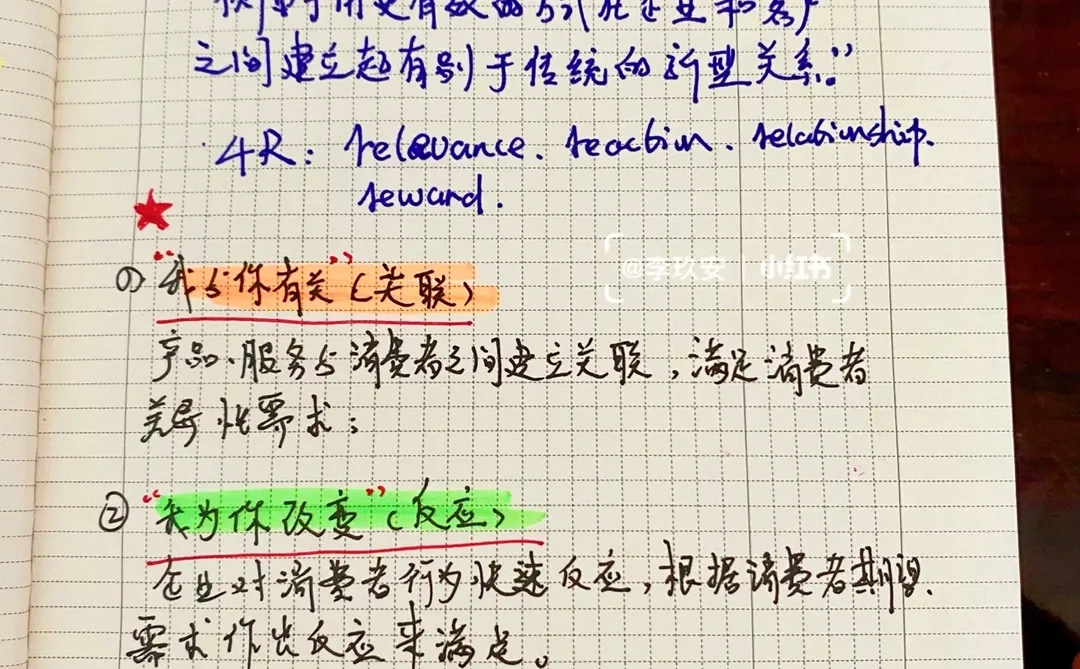 更有效的方式在企业和客户
之间建立起有别于传统的新型关系。”
4R: relevance. reaction. relationship.
reward.
@李玖安 小红书
① “我与你有关”(关联)
产品、服务与消费者之间建立关联,满足消费者
差异性需求;
② “我为你改变”(反应)
企业对消费者行为快速反应,根据消费者期望、
需求作出反应来满足。